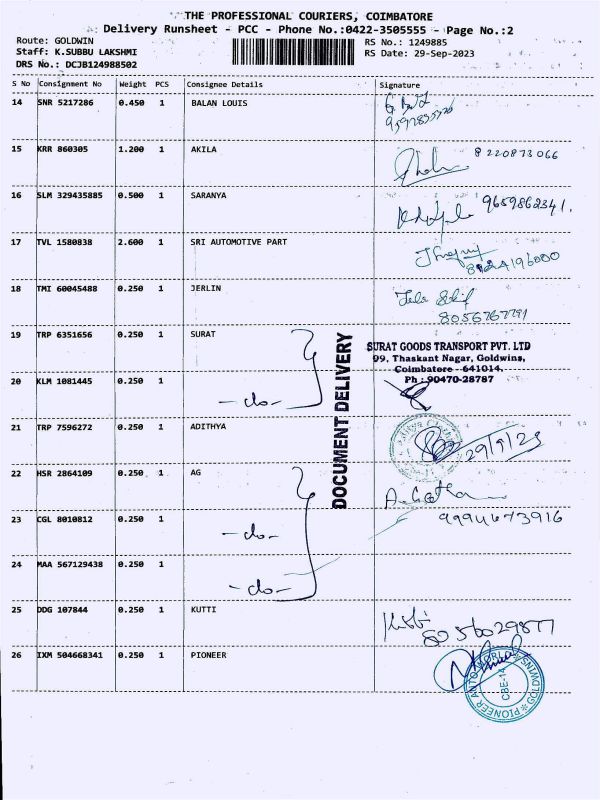 THE PROFESSIONAL COURIERS, COIMBATORE
Delivery Runsheet - PCC - Phone No.:0422-3505555 - Page No.:2
Route: GOLDWIN
RS No.: 1249885
Staff: K.SUBBU LAKSHMI
RS Date: 29-Sep-2023
DRS No.: DCJB124988502
S No Consignment No Weight PCS Consignee Details Signature
14 SNR 5217286 0.450 1 BALAN LOUIS
15 KRR 860305 1.200 1 AKILA 8220873066
16 SLM 329435885 0.500 1 SARANYA 9659862341.
17 TVL 1580838 2.600 1 SRI AUTOMOTIVE PART
18 TMI 60045488 0.250 1 JERLIN
8056767791
19 TRP 6351656 0.250 1 SURAT
SURAT GOODS TRANSPORT PVT. LTD
99, Thaskant Nagar, Goldwins,
Coimbatore - 641014.
Ph : 90470-28787
20 KLM 1081445 0.250 1 -do-
DOCUMENT DELIVERY
21 TRP 7596272 0.250 1 ADITHYA 29/9/23
22 HSR 2864109 0.250 1 AG
23 CGL 8010812 0.250 1 -do- 9994673916
24 MAA 567129438 0.250 1 -do-
25 DDG 107844 0.250 1 KUTTI
8056029877
26 IXM 504668341 0.250 1 PIONEER
PIONEER AUTO WORLD GOLDWINS
CBE-14